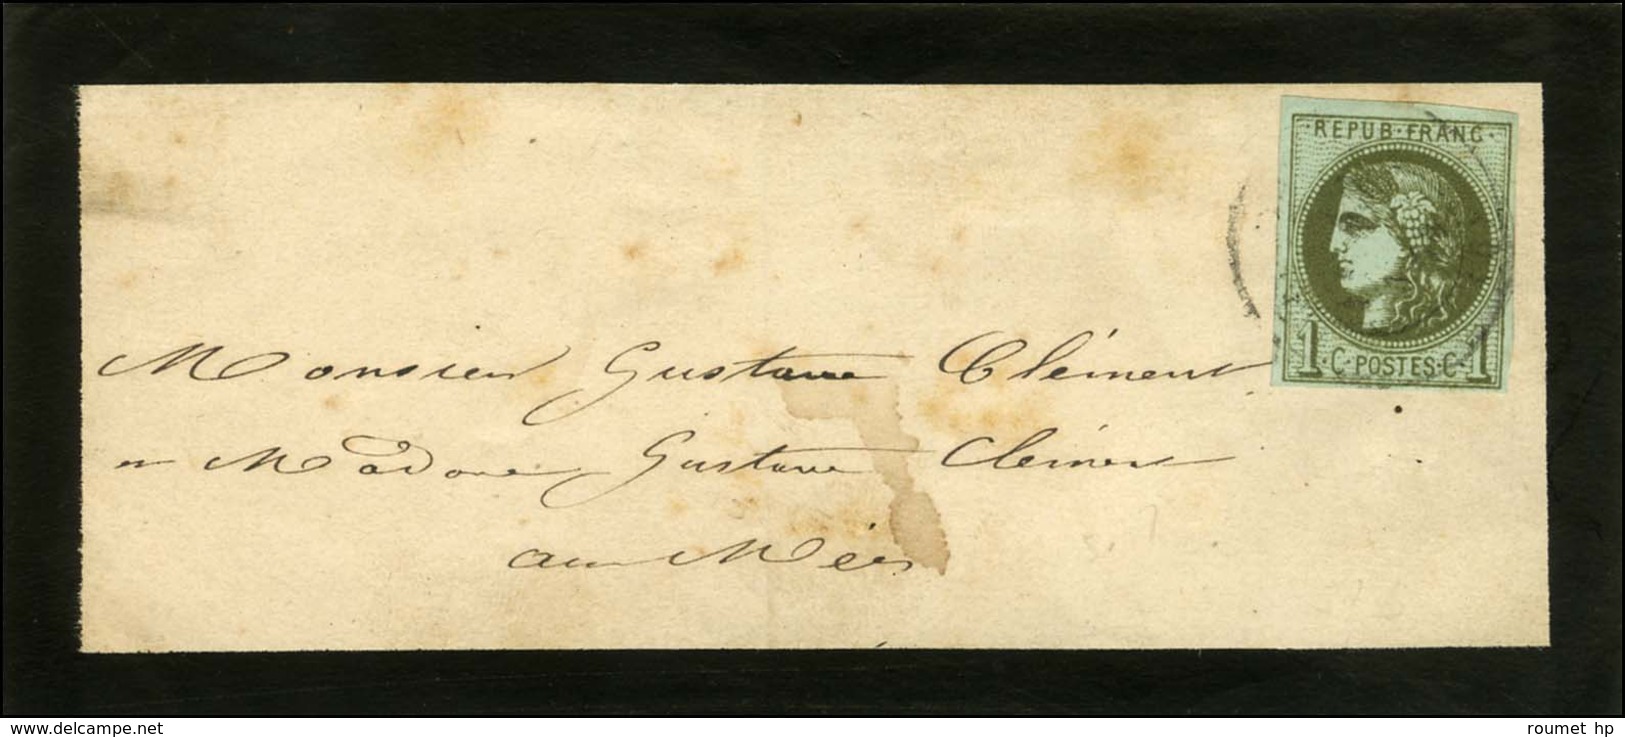 · REPUB · FRANC ·
1 · C · POSTES · C · 1
Monsieur Gustave Clément
et Madame Gustave Clément
aux Mées
www.delcampe.net
roumet hp